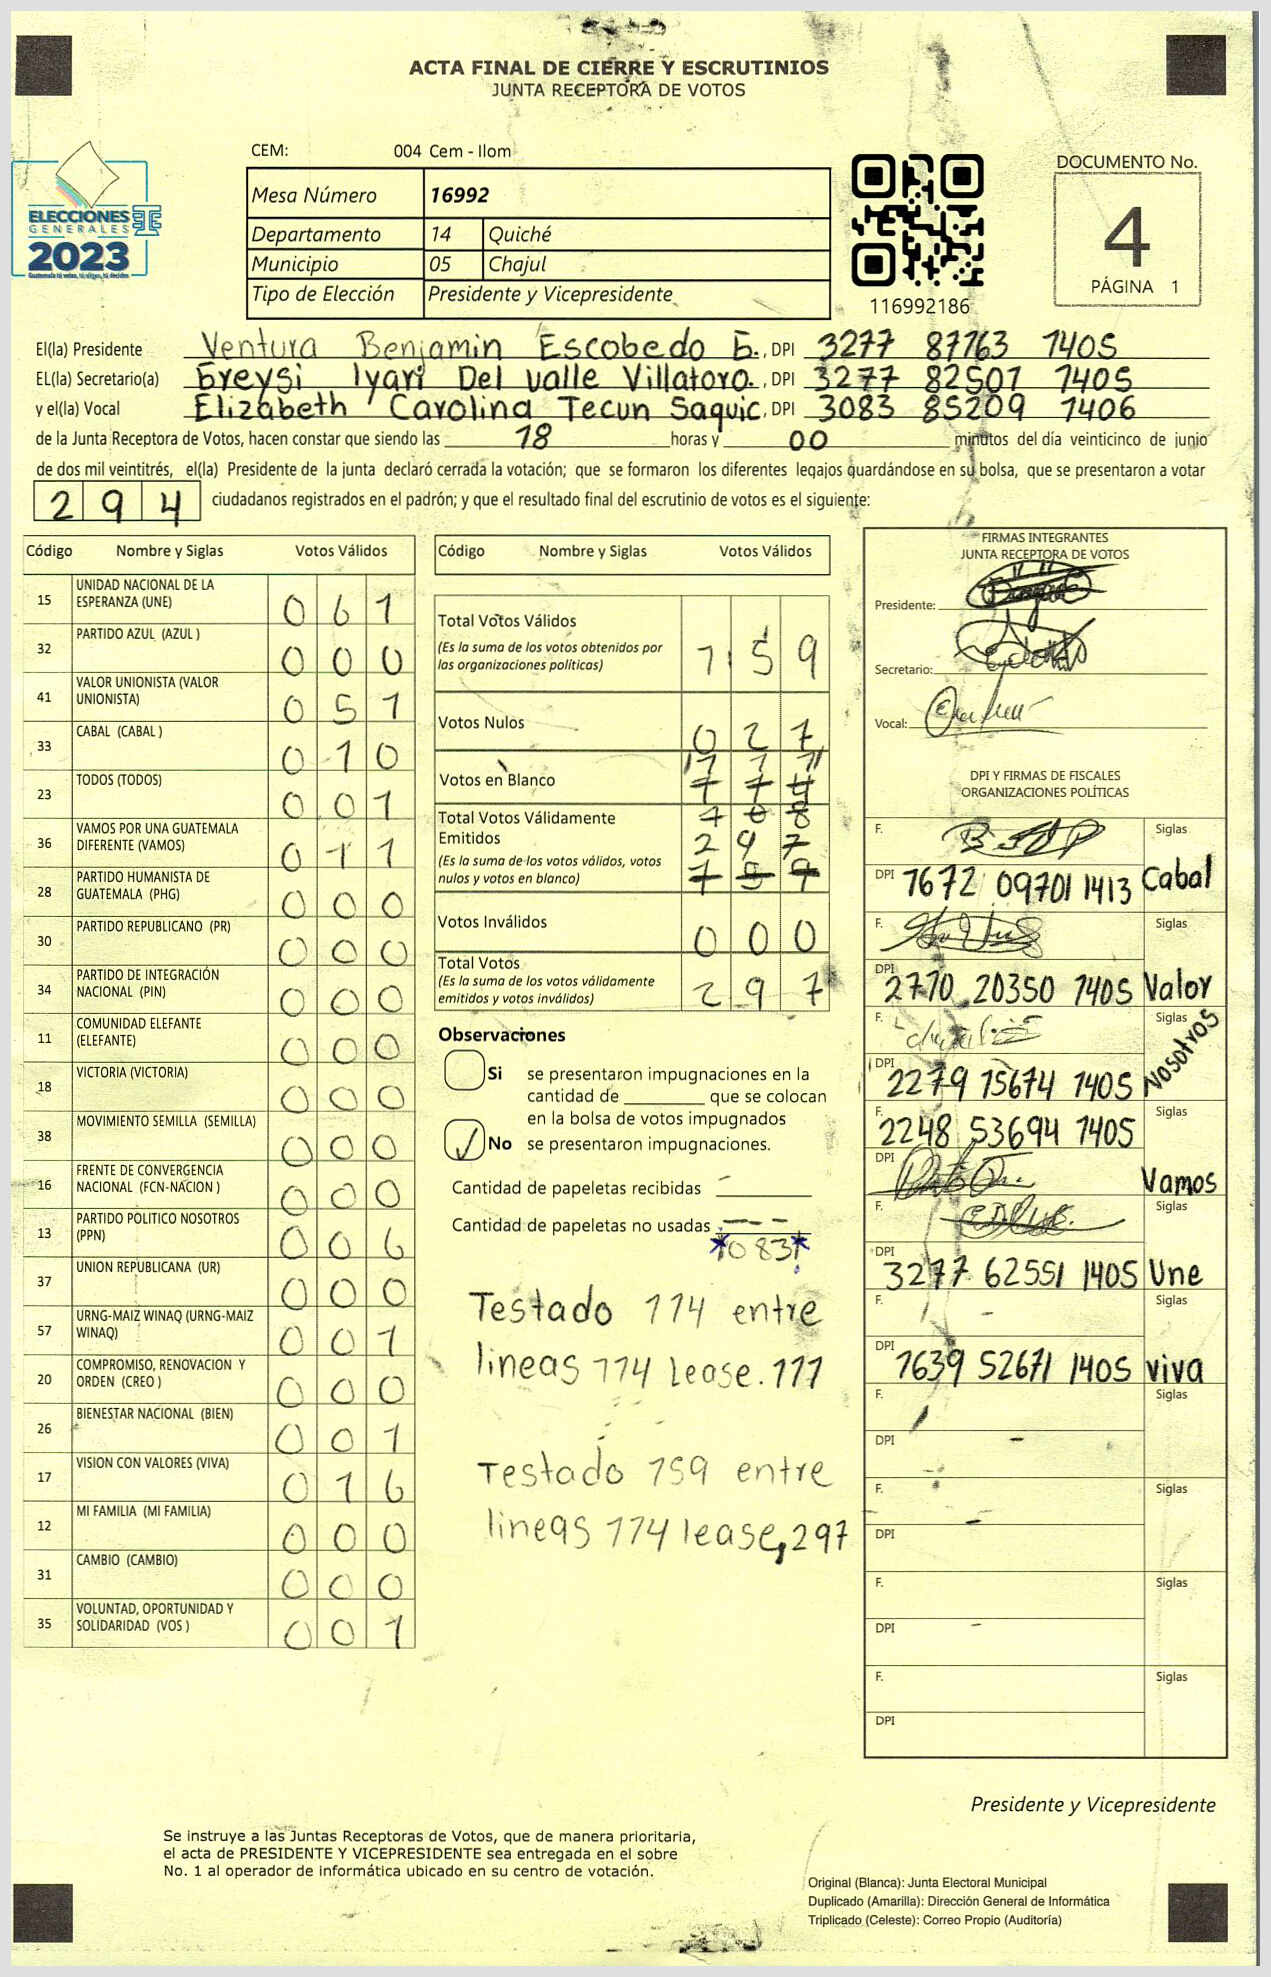 ACTA FINAL DE CIERRE Y ESCRUTINIOS
JUNTA RECEPTORA DE VOTOS
CEM: 004 Cem - Ilom
Mesa Número 16992
Departamento 14 Quiché
Municipio 05 Chajul
Tipo de Elección Presidente y Vicepresidente
ELECCIONES
GENERALES
2023
116992186
DOCUMENTO No.
4
PÁGINA 1
El(la) Presidente Ventura Benjamin Escobedo E., DPI 3277 87763 1405
EL(la) Secretario(a) Greysi Iyari Del Valle Villatoro., DPI 3277 82501 1405
y el(la) Vocal Elizabeth Carolina Tecun Saquic, DPI 3083 85209 1406
de la Junta Receptora de Votos, hacen constar que siendo las 18 horas y 00 minutos del día veinticinco de junio
de dos mil veintitrés, el(la) Presidente de la junta declaró cerrada la votación; que se formaron los diferentes legajos guardándose en su bolsa, que se presentaron a votar
294 ciudadanos registrados en el padrón; y que el resultado final del escrutinio de votos es el siguiente:
Código Nombre y Siglas Votos Válidos
15 UNIDAD NACIONAL DE LA ESPERANZA (UNE) 061
32 PARTIDO AZUL (AZUL ) 000
41 VALOR UNIONISTA (VALOR UNIONISTA) 051
33 CABAL (CABAL ) 010
23 TODOS (TODOS) 001
36 VAMOS POR UNA GUATEMALA DIFERENTE (VAMOS) 011
28 PARTIDO HUMANISTA DE GUATEMALA (PHG) 000
30 PARTIDO REPUBLICANO (PR) 000
34 PARTIDO DE INTEGRACIÓN NACIONAL (PIN) 000
11 COMUNIDAD ELEFANTE (ELEFANTE) 000
18 VICTORIA (VICTORIA) 000
38 MOVIMIENTO SEMILLA (SEMILLA) 000
16 FRENTE DE CONVERGENCIA NACIONAL (FCN-NACION ) 000
13 PARTIDO POLITICO NOSOTROS (PPN) 006
37 UNION REPUBLICANA (UR) 000
57 URNG-MAIZ WINAQ (URNG-MAIZ WINAQ) 001
20 COMPROMISO, RENOVACION Y ORDEN (CREO ) 000
26 BIENESTAR NACIONAL (BIEN) 001
17 VISION CON VALORES (VIVA) 016
12 MI FAMILIA (MI FAMILIA) 000
31 CAMBIO (CAMBIO) 000
35 VOLUNTAD, OPORTUNIDAD Y SOLIDARIDAD (VOS ) 001
Código Nombre y Siglas Votos Válidos
Total Votos Válidos 159
(Es la suma de los votos obtenidos por
las organizaciones políticas)
Votos Nulos 027
"111"
Votos en Blanco 114
108
Total Votos Válidamente
Emitidos 297
(Es la suma de los votos válidos, votos
nulos y votos en blanco) 159
Votos Inválidos 000
Total Votos
(Es la suma de los votos válidamente
emitidos y votos inválidos) 297
Observaciones
Si se presentaron impugnaciones en la
cantidad de que se colocan
en la bolsa de votos impugnados
No se presentaron impugnaciones.
Cantidad de papeletas recibidas
Cantidad de papeletas no usadas
083
Testado 114 entre
lineas 114 lease.111
Testado 159 entre
lineas 114 lease, 297
FIRMAS INTEGRANTES
JUNTA RECEPTORA DE VOTOS
Presidente:
Secretario:
Vocal:
DPI Y FIRMAS DE FISCALES
ORGANIZACIONES POLÍTICAS
F. Siglas
DPI 1672 09701 1413 Cabal
F. Siglas
DPI 2770 20350 1405 Valor
F. Siglas
DPI 2279 15674 1405 Nosotros
F. Siglas
2248 53694 1405
DPI Vamos
F. Siglas
DPI 3277 62551 1405 Une
F. - Siglas
DPI 1639 52671 1405 viva
F. Siglas
DPI -
F. Siglas
DPI
F. Siglas
DPI
F. Siglas
DPI
Presidente y Vicepresidente
Se instruye a las Juntas Receptoras de Votos, que de manera prioritaria,
el acta de PRESIDENTE Y VICEPRESIDENTE sea entregada en el sobre
No. 1 al operador de informática ubicado en su centro de votación.
Original (Blanca): Junta Electoral Municipal
Duplicado (Amarilla): Dirección General de Informática
Triplicado (Celeste): Correo Propio (Auditoría)